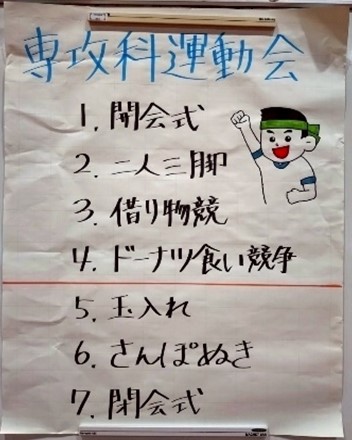 専攻科運動会
1. 開会式
2. 二人三脚
3. 借り物競
4. ドーナツ食い競争
5. 玉入れ
6. さんぽぬき
7. 閉会式